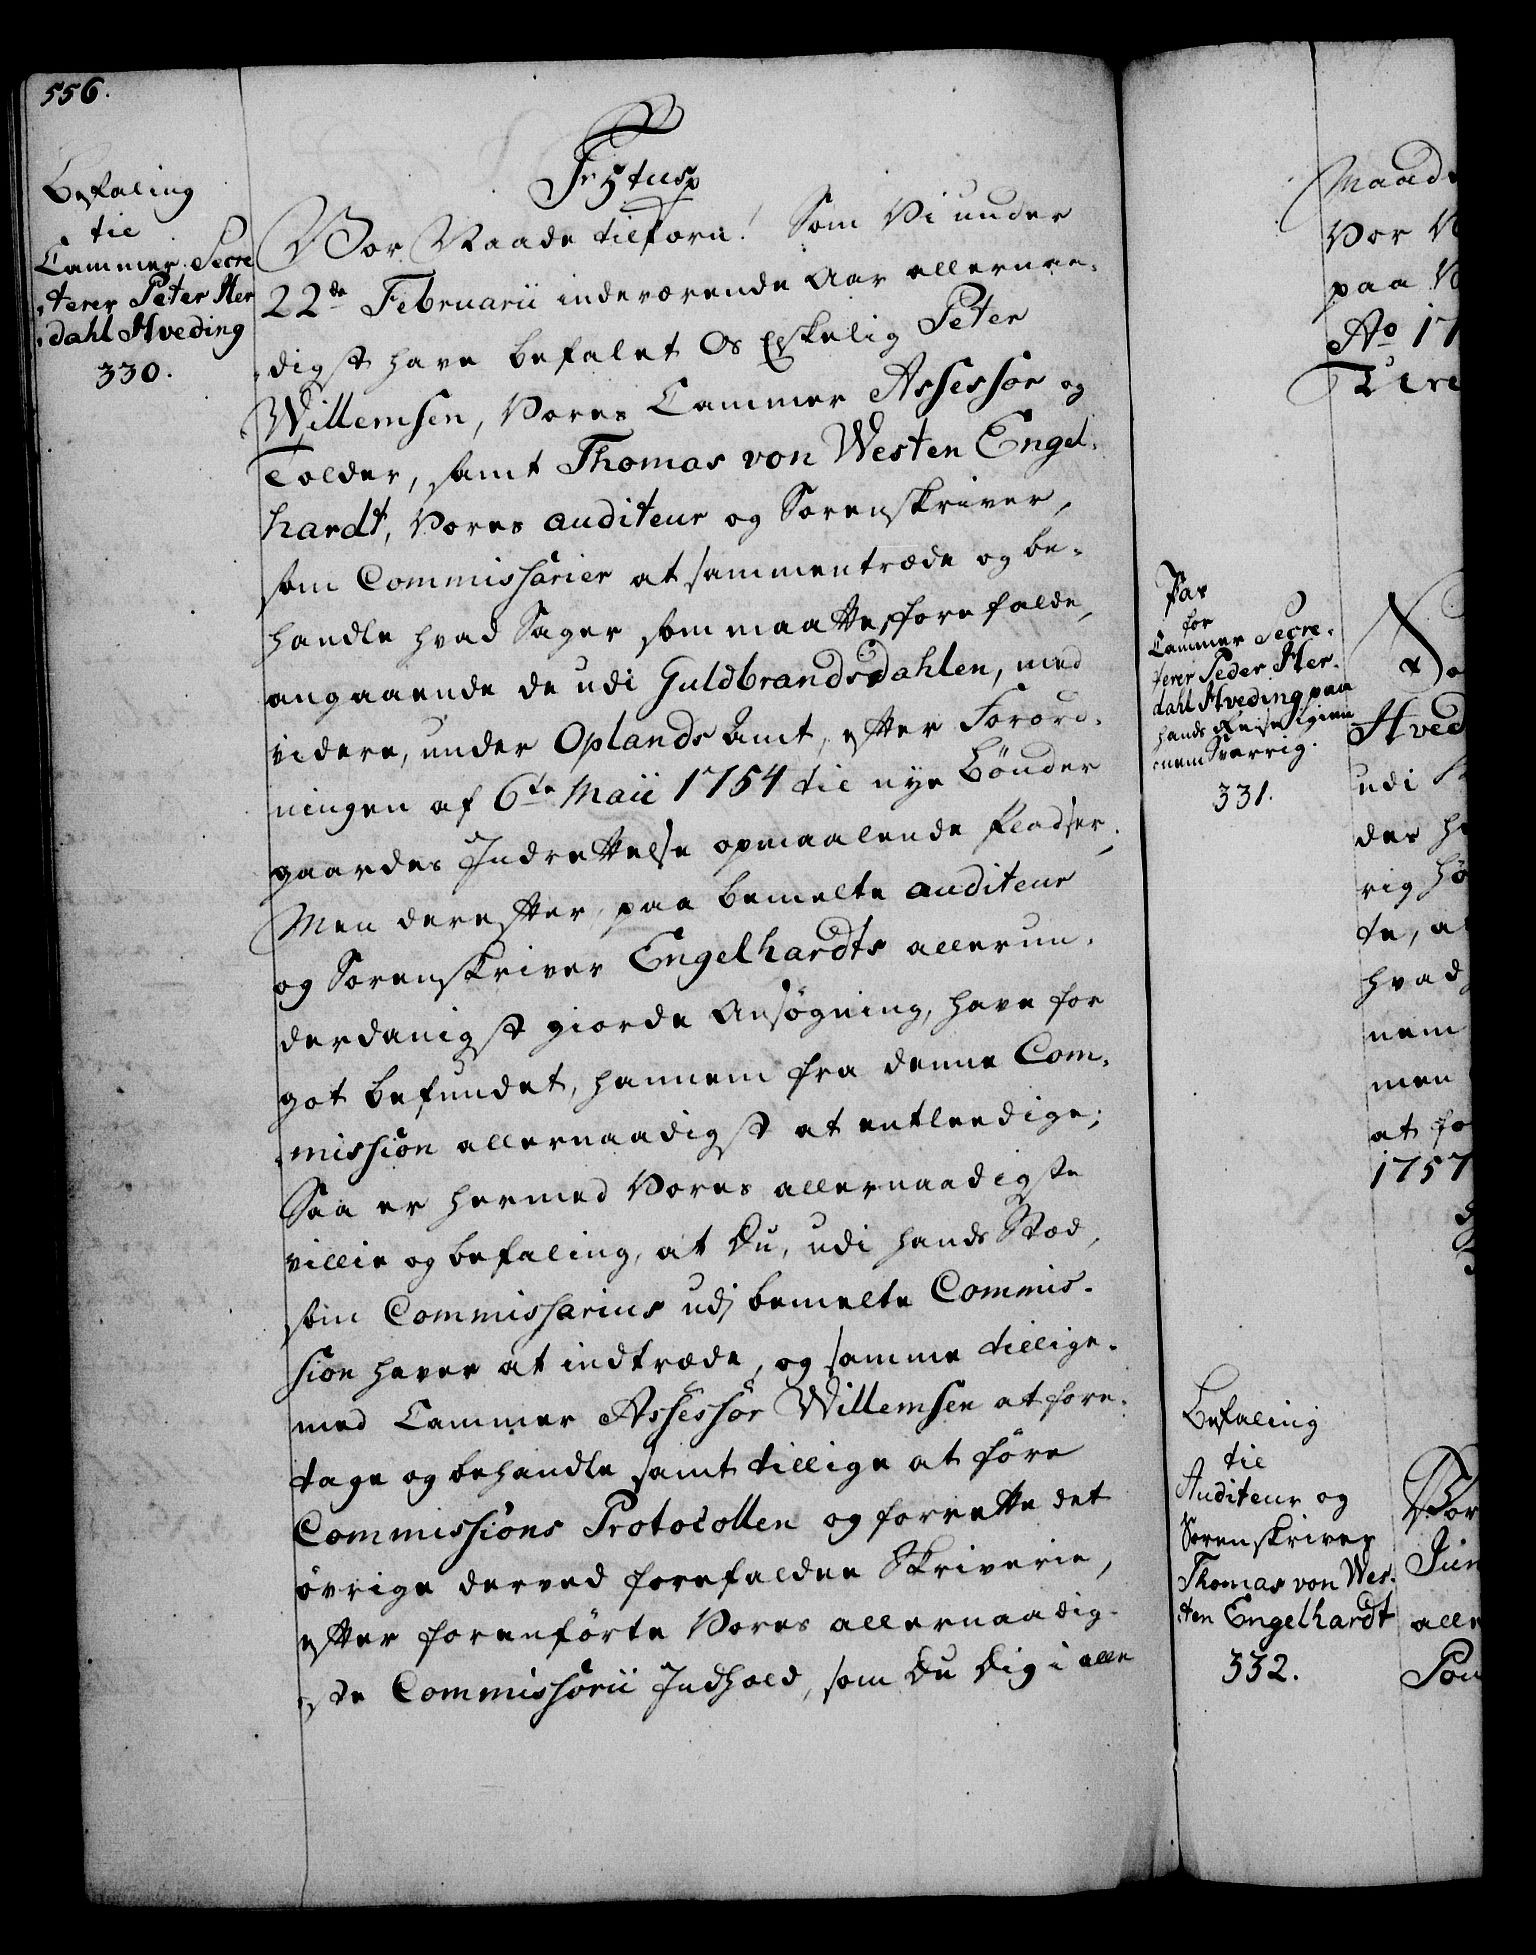 556.
Befaling
til
Cammer-Secre
terer Peter Her
dahl Hveding
330.
Fr 5tus p
Vor Naade tilforn! Som Vi under
22de Februarii indeværende Aar allernaa-
digst have befalet Os Elskelig Peter
Willemsen, Vores Cammer Assessor og
Tolder, samt Thomas von Westen Engel-
hardt, Vores auditeur og Sorenskriver,
som Commissarier at sammentræde og be-
handle hvad Sager som maatte forefalde,
angaaende de udi Guldbrandsdahlen, med
videre, under Oplands Amt, efter Forord-
ningen af 6te Maii 1754 til nye Bönder
gaardes Indrettelse opmaalende Pladser;
Men derefter, paa bemelte auditeur
og Sorenskriver Engelhardts allerun-
derdanigst giorde Ansögning, have for
got befundet, hannem fra denne Com-
mission allernaadigst at entleedige;
Saa er hermed Vores allernaadigste
villie og befaling, at Du, udi hands Stæd,
som Commissarius udj bemelte Commis-
sion haver at indtræde, og samme tillige-
med Cammer Assessor Willemsen at fore-
tage og behandle samt tillige at före
Commissions Protocollen og forrette det
övrige derved forefaldne Skriverie,
efter forenförte Vores allernaadig-
ste Commissorii Indhold, som Du Dig i alle
Maad
Vor
paa
Ao 17
Pas
for
Cammer Secre-
terer Peder Her-
dahl Hveding paa
hands Reise igien-
nem Sverrig.
331.
Hved
udi
der
rig
te, a
hvad
nem
men
at fo
1757
Befaling
til
Auditeur og
Sorenskriver
Thomas von Wes-
ten Engelhardt
332.
Vor
Jun
alle